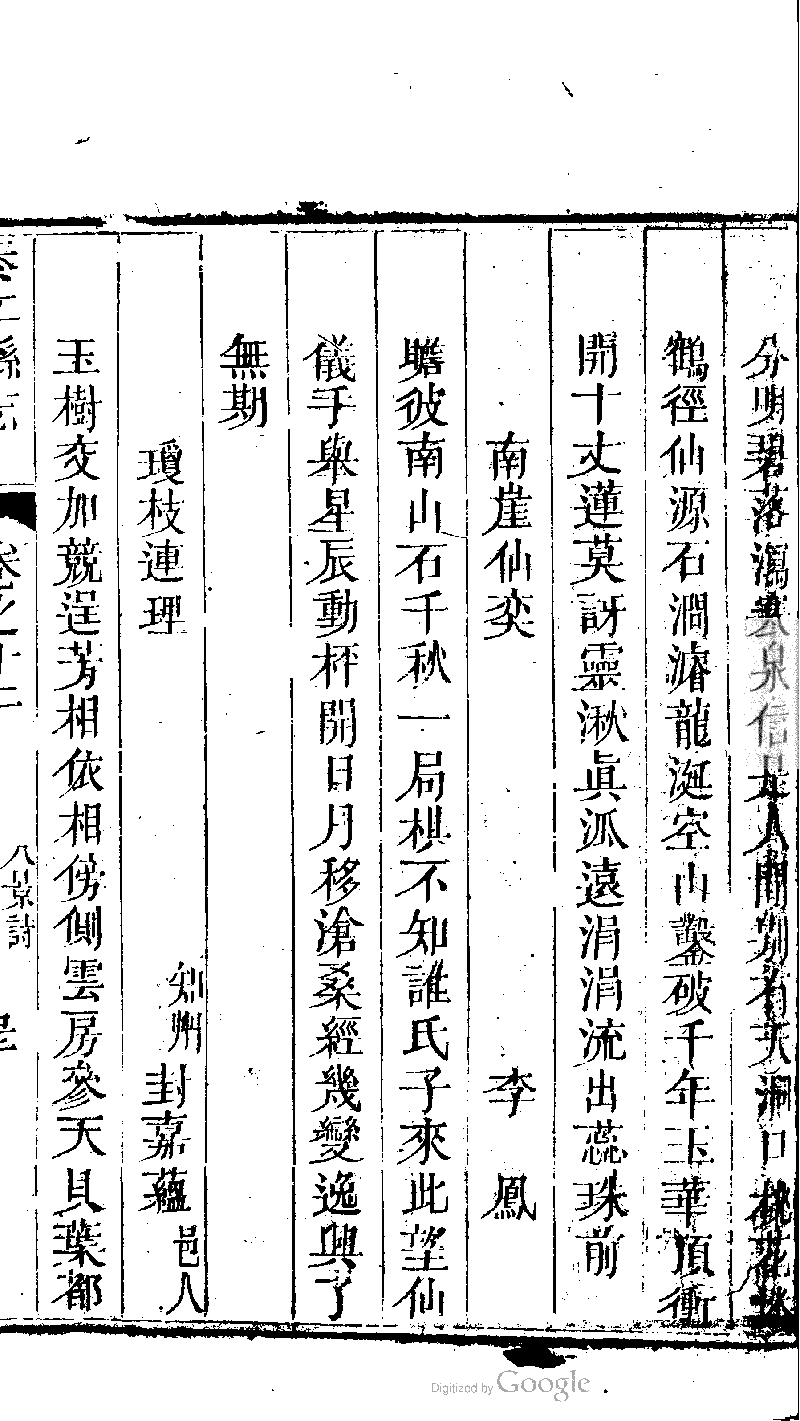 分明碧落瀉寒泉信是人間別有天洞口桃花
鶴徑仙源石澗濬龍涎空山鑿破千年玉華頂衝
開十丈蓮莫訝靈湫眞派遠涓涓流出蕊珠前
南崖仙奕　李鳳
瞻彼南山石千秋一局棋不知誰氏子來此望仙
儀手與星辰動枰開日月移滄桑經幾變逸興了
無期
瓊枝連理　知州封嘉蘊邑人
玉樹交加競逞芳相依相傍側雲房參天貝葉都
縣志　卷之十二　八景詩
Digitized by Google